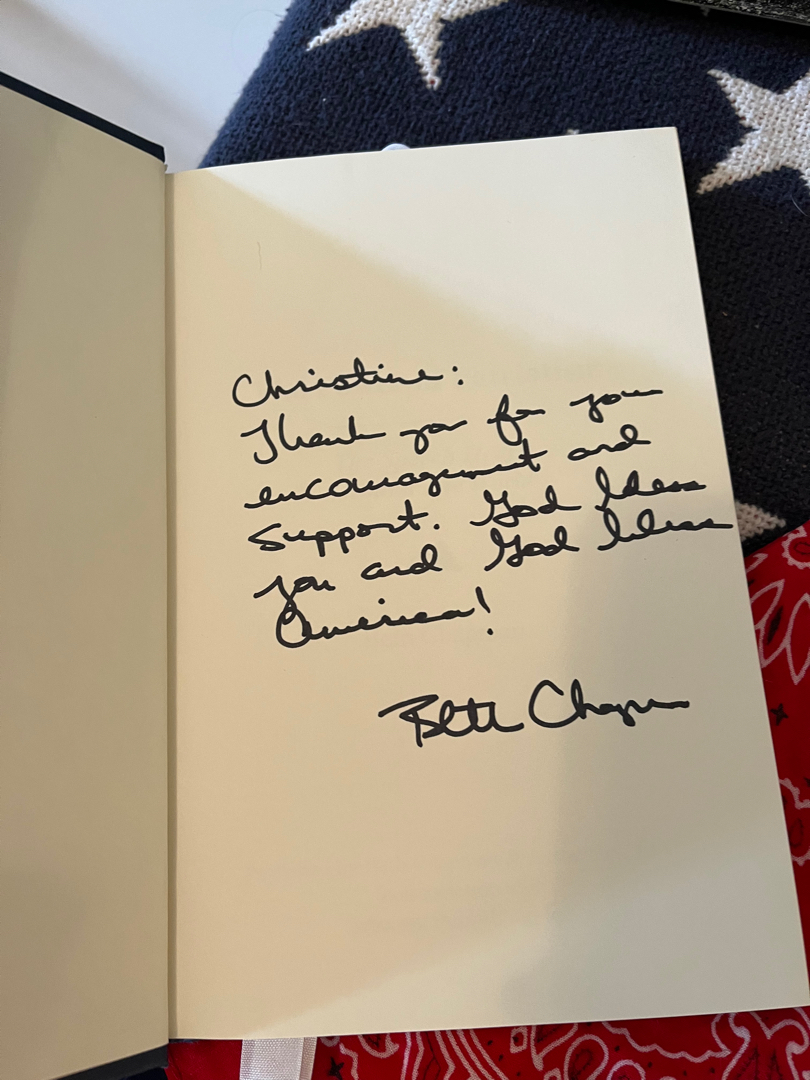 Christine:
Thank you for your
encouragement and
support. God bless
you and God bless
America!
Beth Chapman